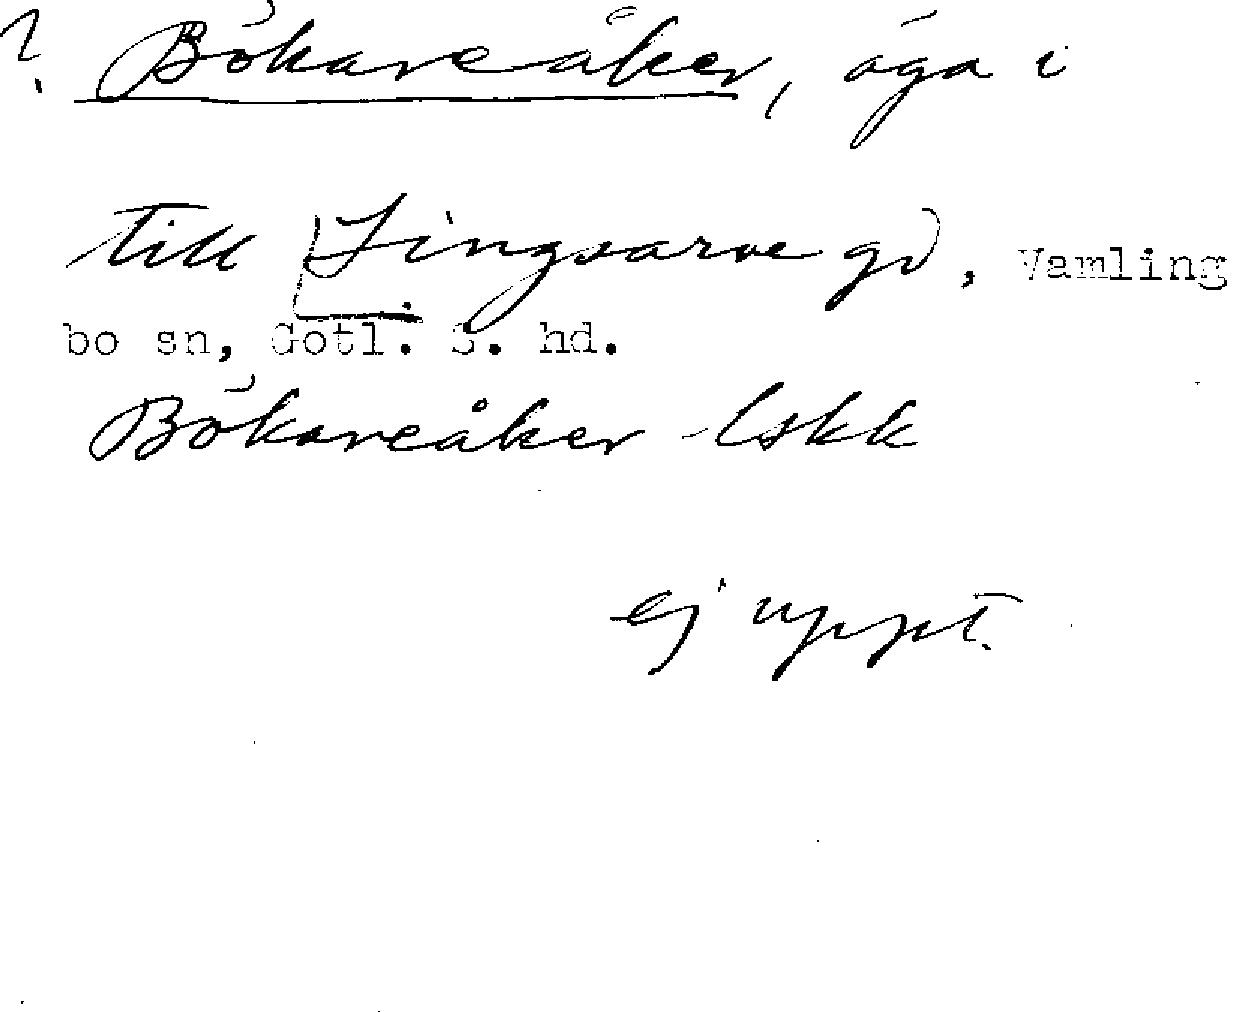 ? Bökareåker, äga i
till Lingsarve gd, Vamling
bo sn, Gotl. S. hd.
Bökareåker lskk
ej uppt.